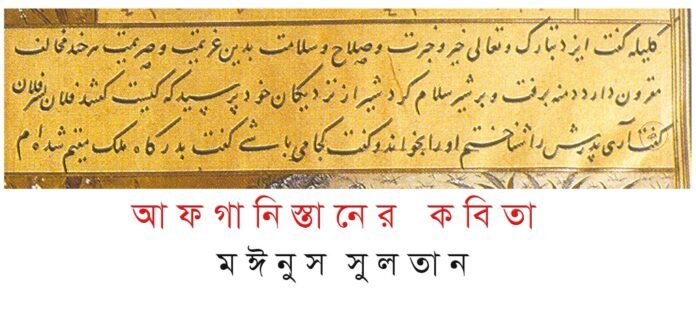 کلیله گفت ایزد تبارک و تعالی خیر و خیرت و صلاح و سلامت بدین عزیمت و صریمت هرچند مخالف
مقرون دارد دمنه برفت و بر شیر سلام کرد شیر از نزدیکان خود پرسید که کیست گفتند فلان پسر فلان
گفت آری پدرش را شناختم او را بخواند و گفت کجا می باشی گفت بدرگاه ملک مقیم شده ام
আফগানিস্তানের কবিতা
মঈনুস সুলতান